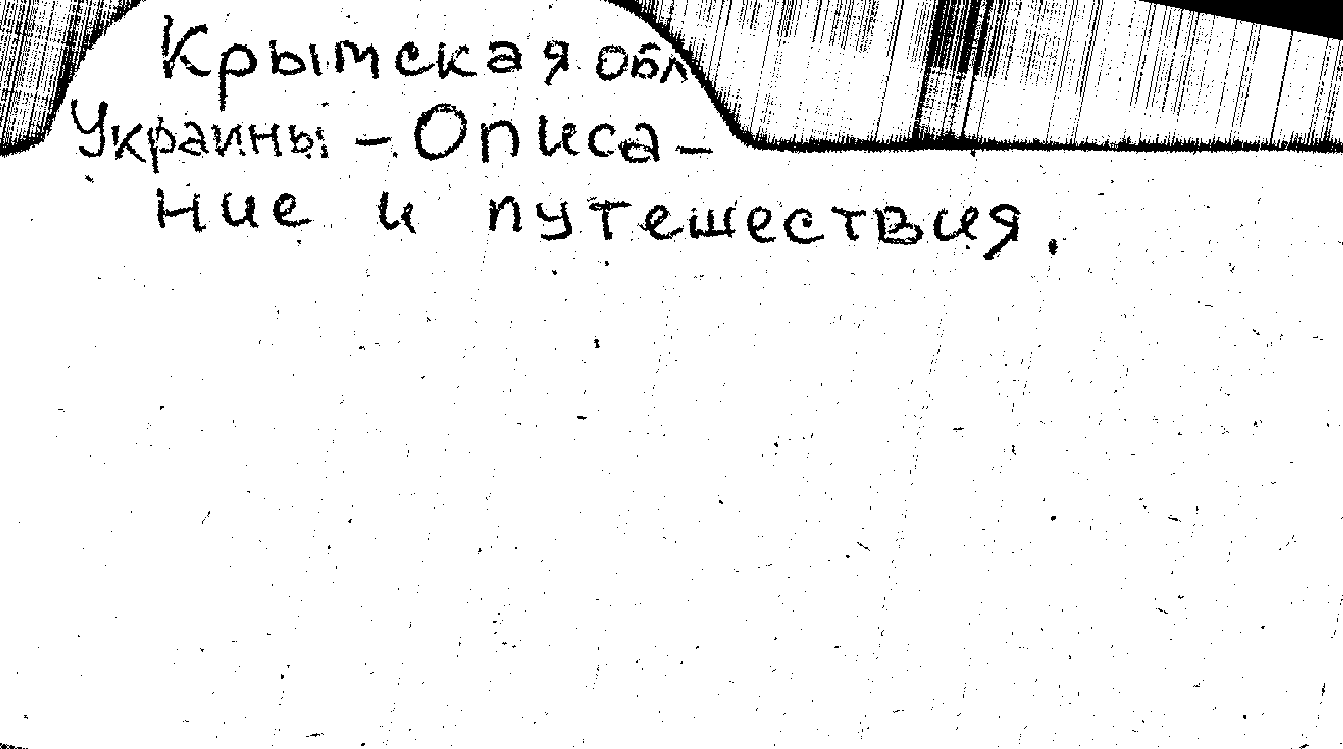 Крымская обл
Украины – Описа–
ние и путешествия.